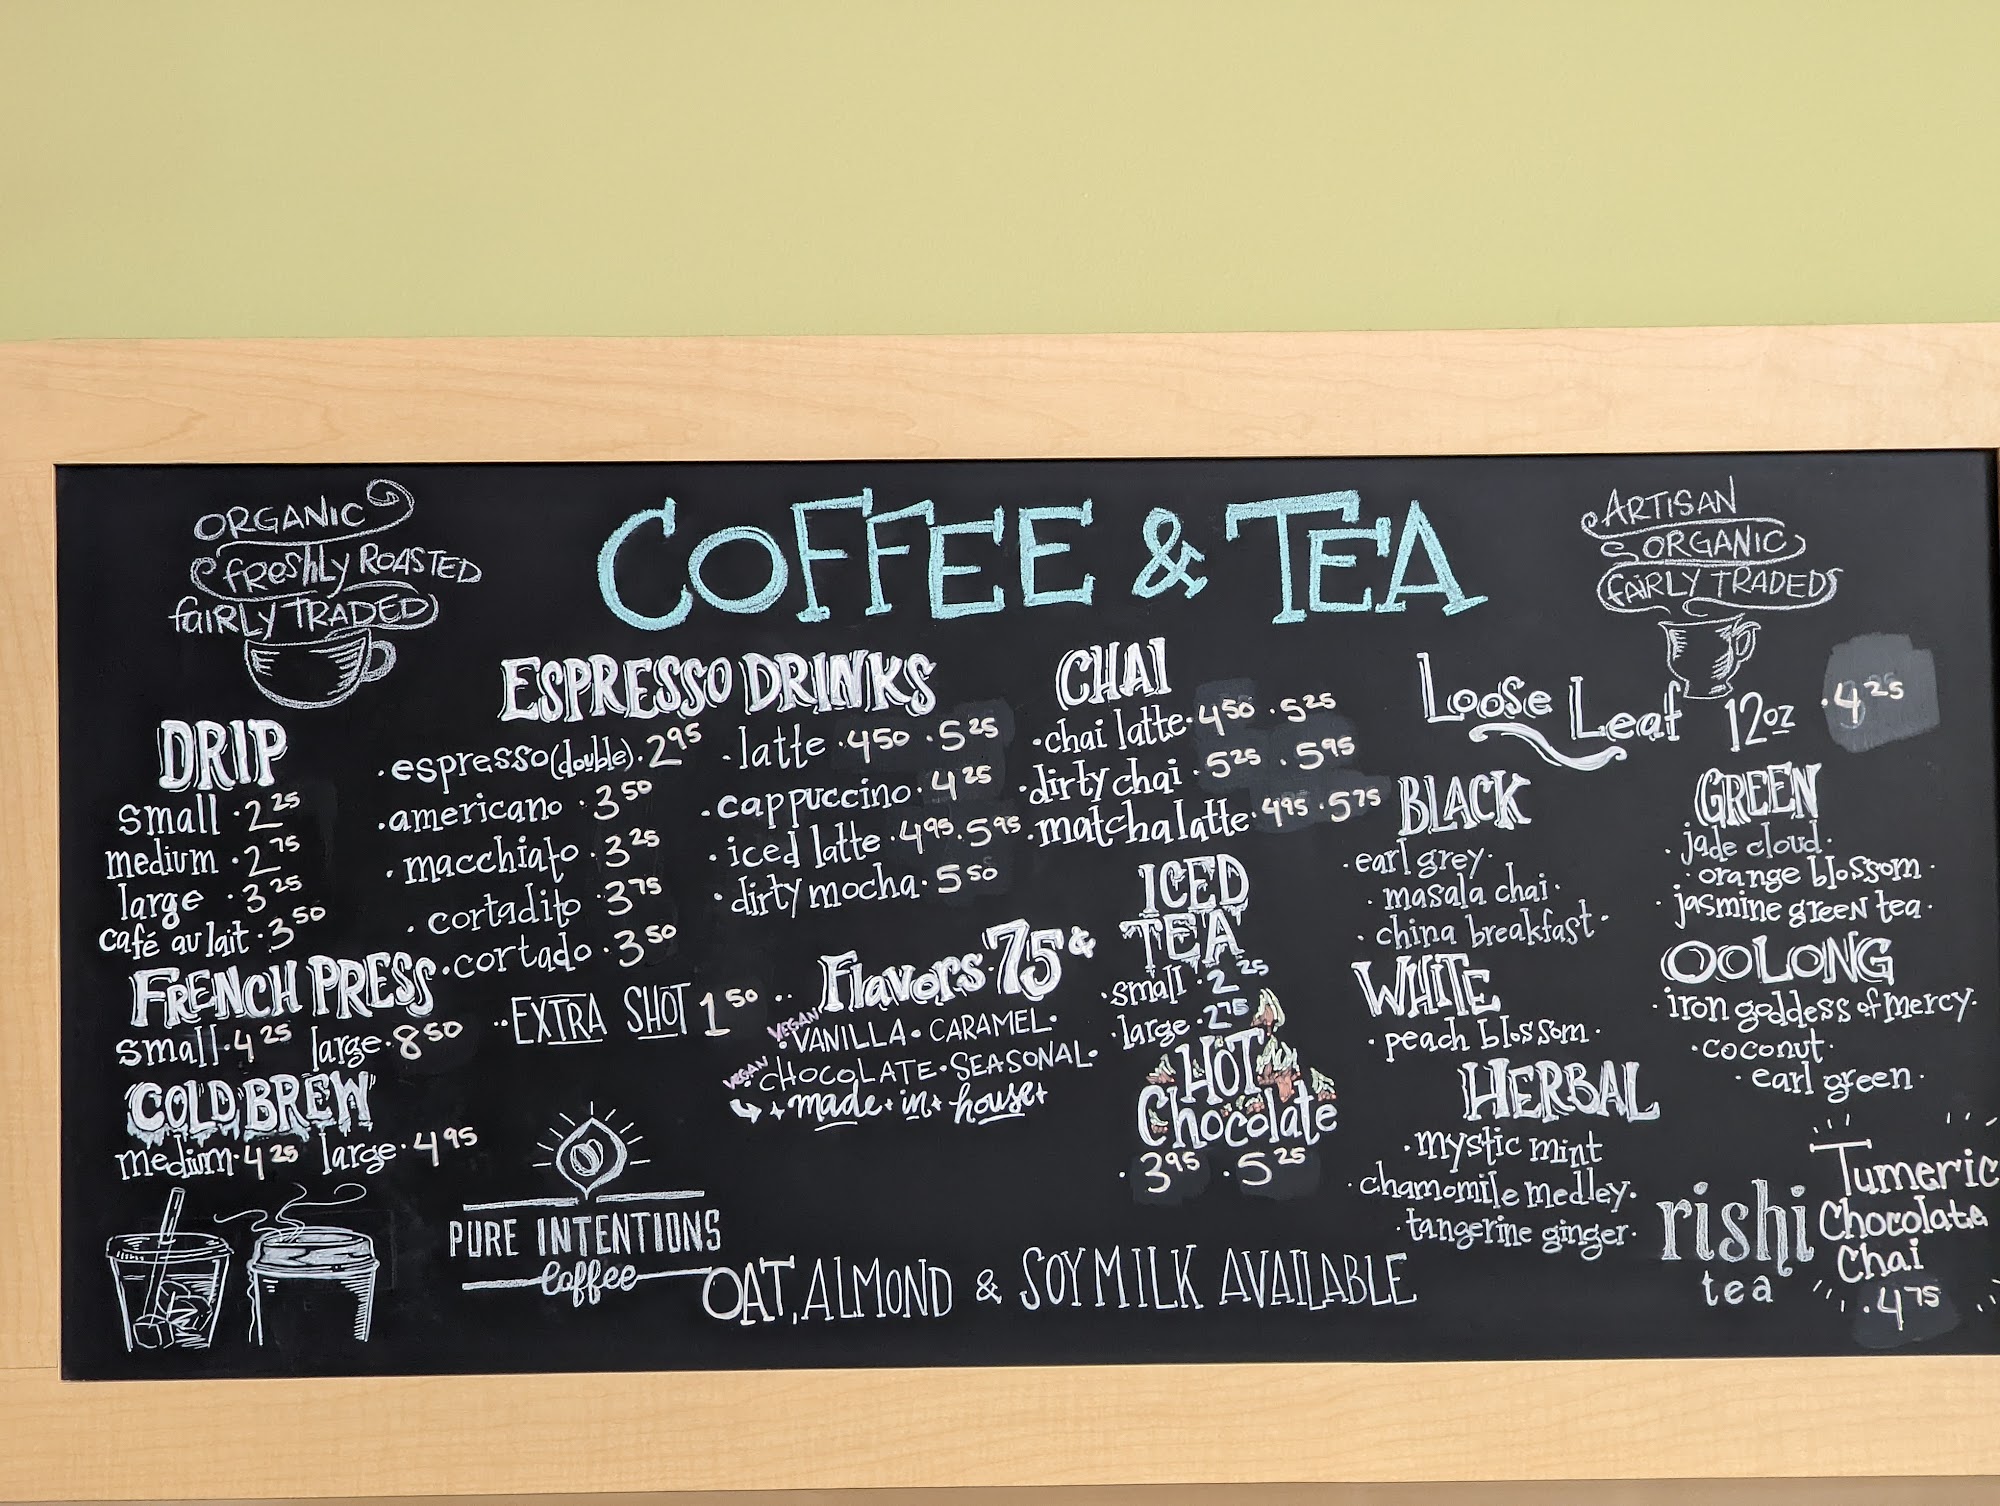 ORGANIC
FRESHLY ROASTED
FAIRLY TRADED
COFFEE & TEA
ARTISAN
ORGANIC
FAIRLY TRADED
DRIP
small · 2.25
medium · 2.75
large · 3.25
café au lait · 3.50
FRENCH PRESS
small · 4.25 large · 8.50
COLD BREW
medium · 4.25 large · 4.95
ESPRESSO DRINKS
· espresso (double) · 2.95
· americano · 3.50
· macchiato · 3.25
· cortadito · 3.75
· cortado · 3.50
·· EXTRA SHOT 1.50 ··
· latte · 4.50 · 5.25
· cappuccino · 4.25
· iced latte · 4.95 · 5.95
· dirty mocha · 5.50
Flavors · 75¢
VEGAN VANILLA · CARAMEL ·
VEGAN CHOCOLATE · SEASONAL ·
made in house
PURE INTENTIONS
Coffee
CHAI
· chai latte · 4.50 · 5.25
· dirty chai · 5.25 · 5.95
· matcha latte · 4.95 · 5.75
ICED
TEA
· small · 2.25
· large · 2.75
HOT
Chocolate
· 3.95 · 5.25
OAT, ALMOND & SOY MILK AVAILABLE
Loose Leaf 12oz · 4.25
BLACK
· earl grey ·
· masala chai ·
· china breakfast ·
WHITE
· peach blossom ·
HERBAL
· mystic mint
· chamomile medley ·
· tangerine ginger ·
GREEN
· jade cloud ·
· orange blossom ·
· jasmine green tea ·
OOLONG
· iron goddess of mercy ·
· coconut ·
· earl green ·
rishi
tea
Tumeric
Chocolate
Chai
· 4.75